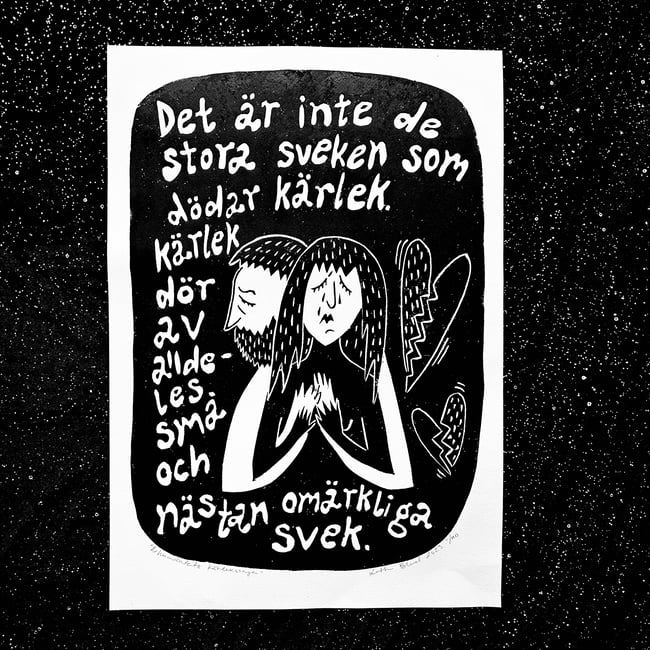 Det är inte de
stora sveken som
dödar kärlek.
kärlek
dör
av
allde-
les
små
och
nästan omärkliga
svek.
2023